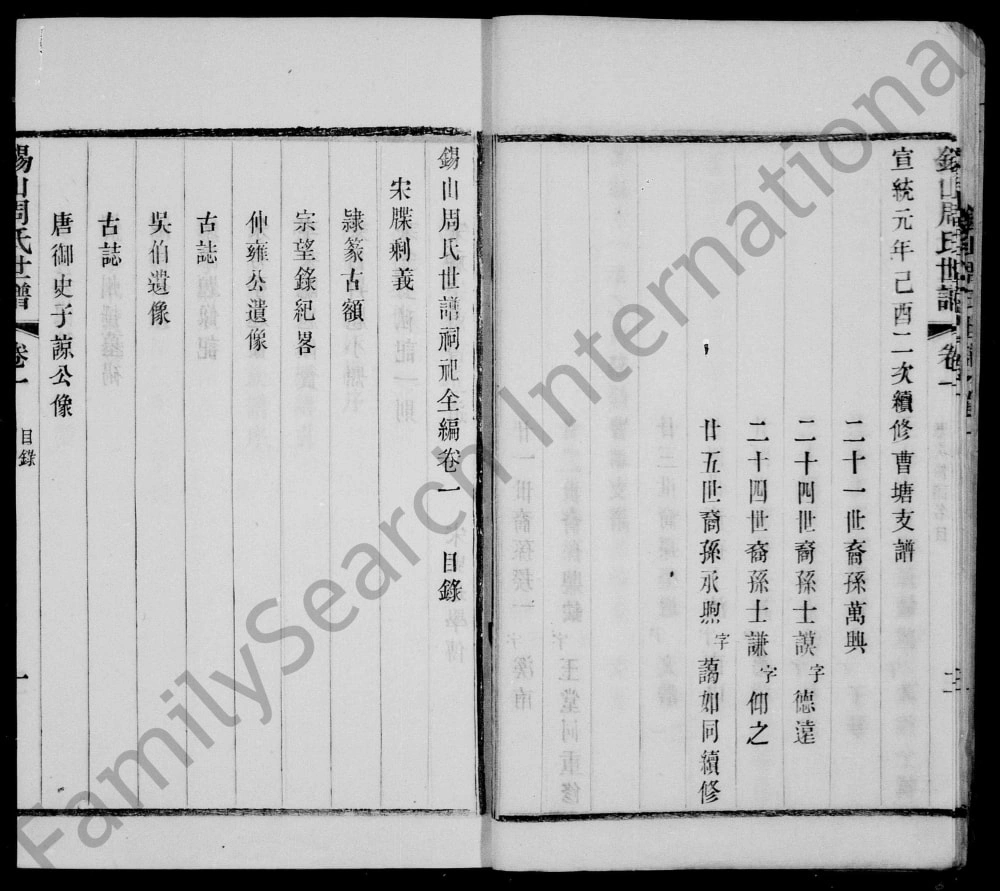 錫山周氏世譜 卷一
宣統元年己酉二次續修曹塘支譜
二十一世裔孫萬興
二十四世裔孫士謨字德遠
二十四世裔孫士謙字仰之
廿五世裔孫承煦字藹如同續修
錫山周氏世譜祠祀全編卷一 目錄
宋牒剩義
隸篆古額
宗望錄紀畧
仲雍公遺像
古誌
吳伯遺像
古誌
唐御史子諒公像
錫山周氏世譜 卷一 目錄 一
FamilySearch International